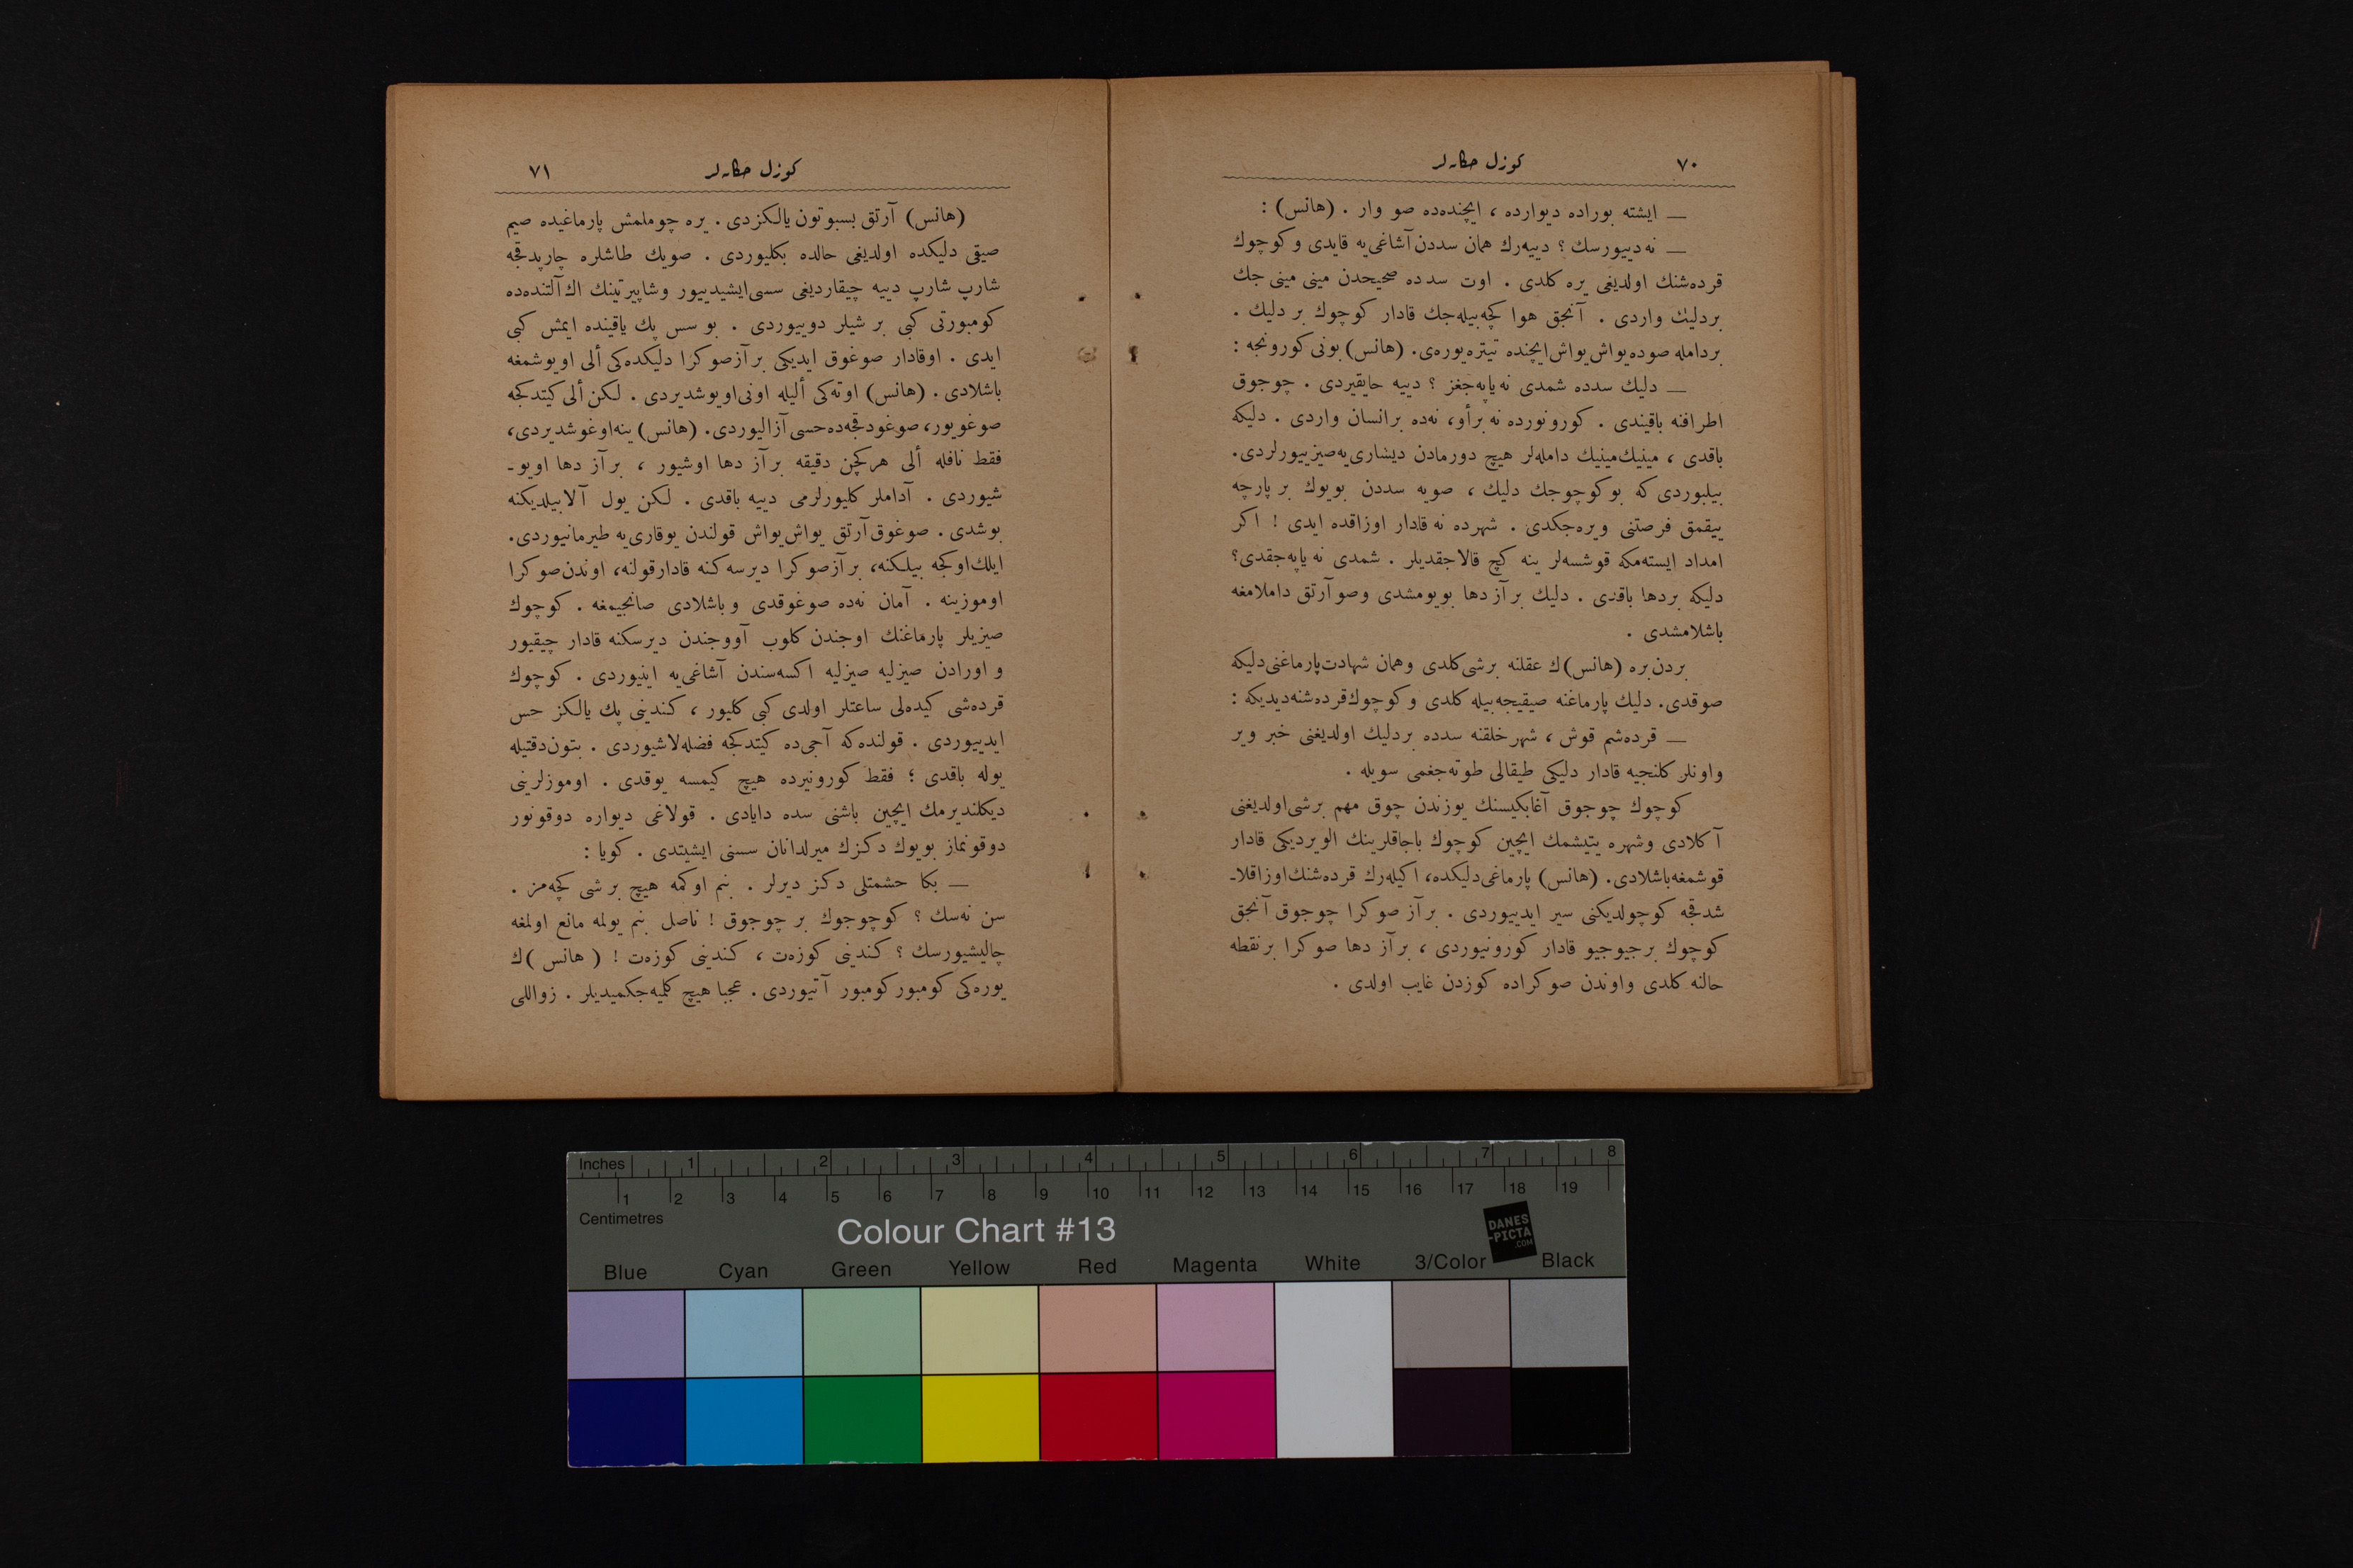 ٧٠
كوزل حكايه‌لر
— ايشته بوراده ديوارده ، ايچنده‌ده صو وار . (هانس) :
— نه دييورسك ؟ دييه‌رك همان سددن آشاغى‌يه قايدى و كوچوك
قرده‌شنك اولديغى يره كلدى . اوت سدده صحيحدن مينى مينى جك
بردليك واردى . آنجق هوا كچه‌بيله‌جك قادار كوچوك بر دليك .
بردامله صوده يواش يواش ايچنده تيتره‌يوره‌ى. (هانس) بونى كورونجه :
— دليك سدده شمدى نه ياپه‌جغز ؟ دييه حايقيردى . چوجوق
اطرافنه باقيندى . كورونورده نه برأو، نه‌ده برانسان واردى . دليكه
باقدى ، مينيك‌مينيك دامله‌لر هيچ دورمادن ديشارى‌يه صيزييورلردى.
بيليوردى كه بو كوچوجك دليك ، صويه سددن بويوك بر پارچه
ييقمق فرصتنى ويره‌جكدى . شهرده نه قادار اوزاقده ايدى ! اكر
امداد ايسته‌مكه قوشسه‌لر ينه كچ قالاجقديلر . شمدى نه ياپه‌جقدى؟
دليكه بردها باقدى . دليك بر آز دها بويومشدى وصو آرتق داملامغه
باشلامشدى .
بردن بره (هانس)ك عقلنه برشى كلدى وهمان شهادت پارماغنى دليكه
صوقدى. دليك پارماغنه صيقيجه بيله كلدى و كوچوك قرده‌شنه ديديكه :
— قرده‌شم قوش ، شهر خلقنه سدده بردليك اولديغنى خبر وير
واونلر كلنجيه قادار دليكى طيقالى طوته‌جغمى سويله .
كوچوك چوجوق آغابكيسنك يوزندن چوق مهم برشى اولديغنى
آكلادى وشهره يتيشمك ايچين كوچوك باجاقلرينك الويرديكى قادار
قوشمغه باشلادى. (هانس) پارماغى دليكده، اكيله‌رك قرده‌شنك اوزاقلا-
شدقجه كوچولديكنى سير ايدييوردى . بر آز صوكرا چوجوق آنجق
كوچوك برجيوجيو قادار كورونيوردى ، بر آز دها صوكرا بر نقطه
حالنه كلدى واوندن صوكراده كوزدن غايب اولدى .
كوزل حكايه‌لر
٧١
(هانس) آرتق بسبوتون يالكزدى . يره چوملمش پارماغيده صيم
صيقى دليكده اولديغى حالده بكليوردى . صويك طاشلره چارپدقجه
شارپ شارپ دييه چيقارديغى سسى ايشيدييور وشاپيرتينك اك آلتنده‌ده
كومبورتى كبى بر شيلر دوييوردى . بو سس پك ياقينده ايمش كبى
ايدى . اوقادار صوغوق ايديكى بر آزصوكرا دليكده‌كى ألى اويوشمغه
باشلادى . (هانس) اوته‌كى أليله اونى اويوشديردى . لكن ألى كيتدكجه
صوغويور، صوغودقجه‌ده حسى آزاليوردى. (هانس) ينه اوغوشديردى،
فقط نافله ألى هركچن دقيقه بر آز دها اوشيور ، بر آز دها اويو-
شيوردى . آداملر كليورلرمى دييه باقدى . لكن يول آلابيلديكنه
بوشدى . صوغوق آرتق يواش يواش قولندن يوقارى‌يه طيرمانيوردى.
ايلك‌اوكجه بيلكنه، بر آزصوكرا ديرسه‌كنه قادار قولنه، اوندن صوكرا
اوموزينه . آمان نه‌ده صوغوقدى و باشلادى صانجيمغه . كوچوك
صيزيلر پارماغنك اوجندن كلوب آووجندن ديرسكنه قادار چيقيور
و اورادن صيزليه صيزليه اكسه‌سندن آشاغى‌يه اينيوردى . كوچوك
قرده‌شى كيده‌لى ساعتلر اولدى كبى كليور ، كندينى پك يالكز حس
ايدييوردى . قولنده‌كه آجى‌ده كيتدكجه فضله‌لاشيوردى . بتون دقتيله
يوله باقدى ؛ فقط كورونيرده هيچ كيمسه يوقدى . اوموزلرينى
ديكلنديرمك ايچين باشنى سده دايادى . قولاغى ديواره دوقونور
دوقونماز بويوك دكزك ميرلدانان سسنى ايشيتدى . كويا :
— بكا حشمتلى دكز ديرلر . بنم اوكمه هيچ بر شى كچه‌مز .
سن نه‌سك ؟ كوچوجوك بر چوجوق ! ناصل بنم يولمه مانع اولمغه
چاليشيورسك ؟ كندينى كوزه‌ت ، كندينى كوزه‌ت ! ( هانس )ك
يوره‌كى كومبور كومبور آتيوردى . عجبا هيچ كلميه‌جكميديلر . زواللى
Inches 1 2 3 4 5 6 7 8
1 2 3 4 5 6 7 8 9 10 11 12 13 14 15 16 17 18 19
Centimetres
Colour Chart #13
DANES
-PICTA
.COM
Blue Cyan Green Yellow Red Magenta White 3/Color Black